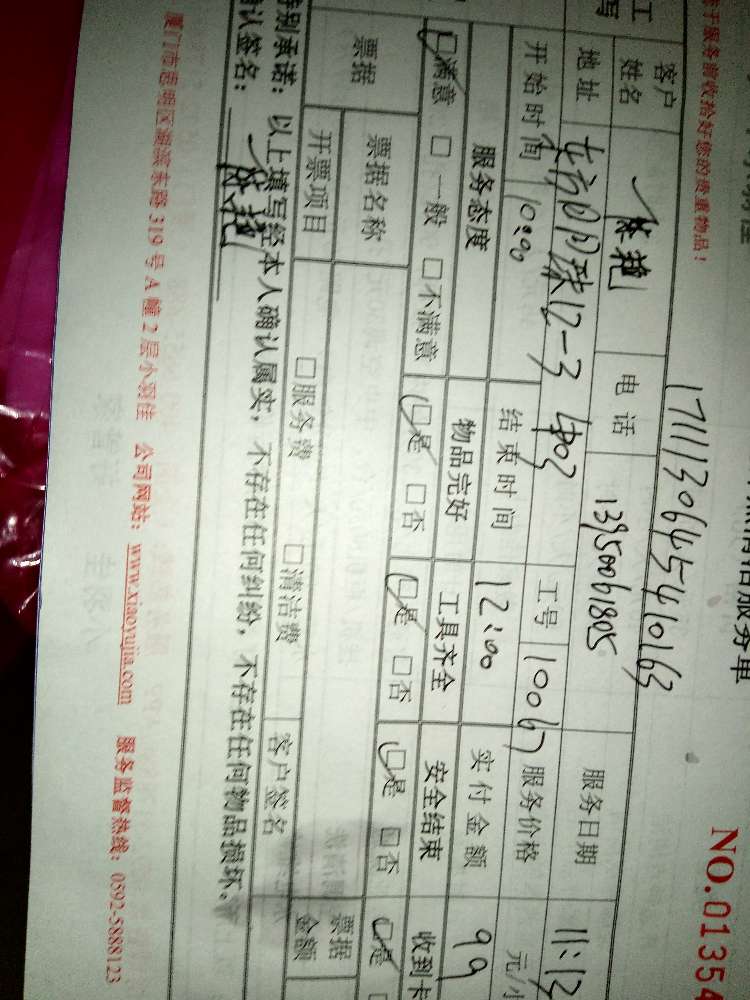 服务单
NO.01354
于服务前收拾好您的贵重物品！
17111306454 10163
客户姓名 林艳 电话 13950061805 服务日期 11:13
地址 东方明珠12-3 403 工号 10067 服务价格 元/小
开始时间 10:00 结束时间 12:00 实付金额 99
服务态度 物品完好 工具齐全 安全结束 收到卡
☑满意 □一般 □不满意 ☑是 □否 ☑是 □否 ☑是 □否 ☑是
票据 票据名称 客户签名 票据金额
开票项目 □服务费 □清洁费
特别承诺：以上填写经本人确认属实，不存在任何纠纷，不存在任何物品损坏。
确认签名： 林艳
厦门市思明区湖滨东路 319 号 A 幢 2 层小羽佳 公司网站：www.xiaoyujia.com 服务监督热线：0592-5888123